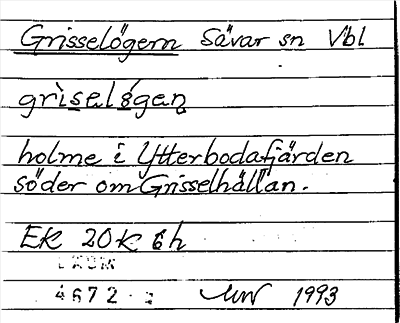 Grisselögern Sävar sn Vbl
griselögen
holme i Ytterbodafjärden
söder om Grisselhällan.
EK 20K 6h
4672
1993